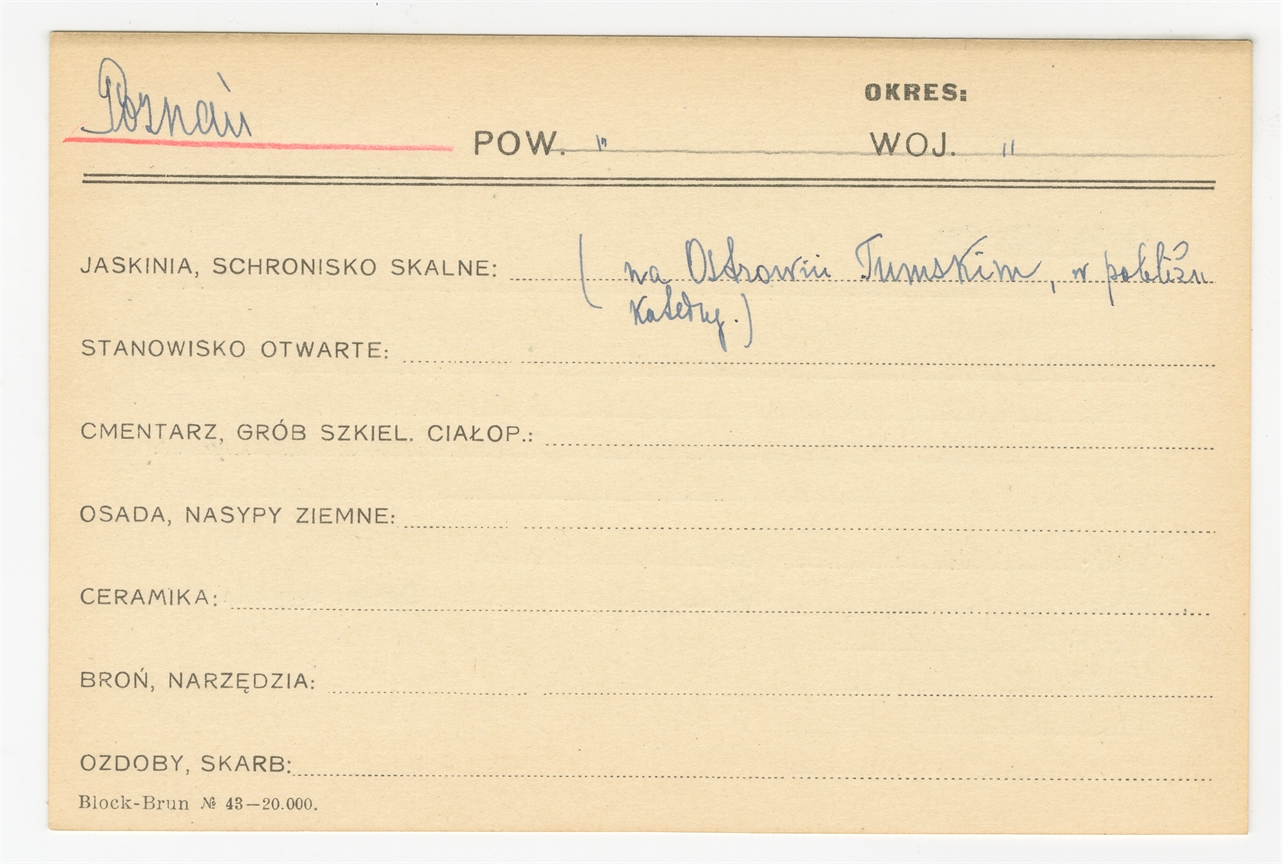 Poznań
OKRES:
POW. " WOJ. "
JASKINIA, SCHRONISKO SKALNE: ( na Ostrowiu Tumskim, w pobliżu
Katedry.)
STANOWISKO OTWARTE:
CMENTARZ, GRÓB SZKIEL. CIAŁOP.:
OSADA, NASYPY ZIEMNE:
CERAMIKA:
BROŃ, NARZĘDZIA:
OZDOBY, SKARB:
Block-Brun № 43—20.000.